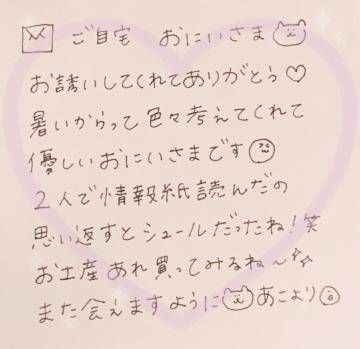 ご自宅 おにいさま
お誘いしてくれてありがとう♡
暑いからって色々考えてくれて
優しいおにいさまです
2人で情報紙読んだの
思い返すとシュールだったね!笑
お土産あれ買ってみるね〜
また会えますように あこより